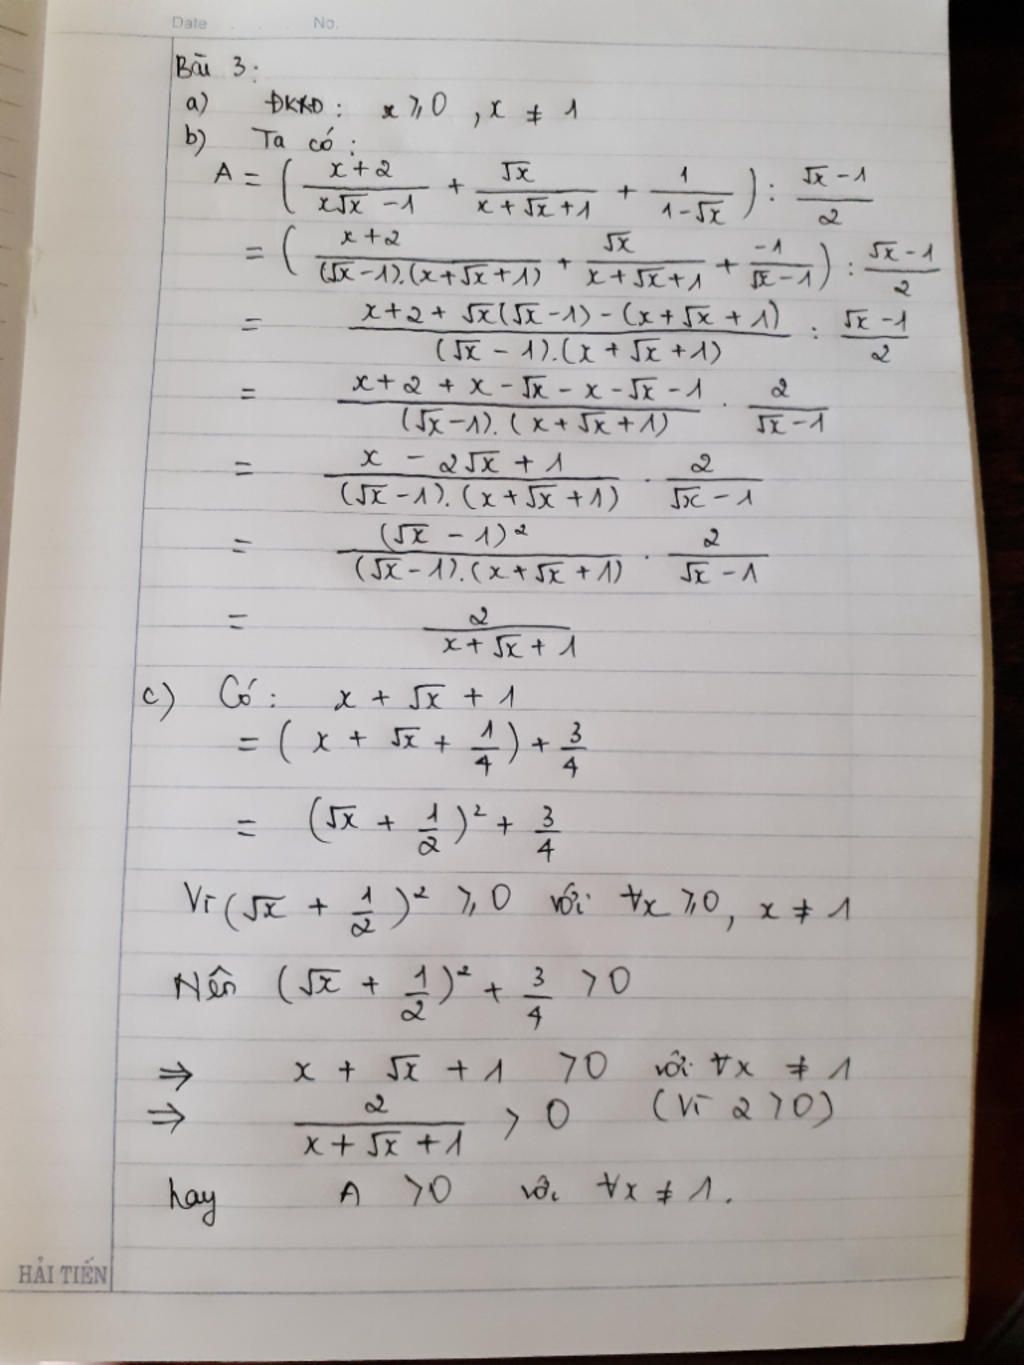 Date . . No.
Bài 3:
a) ĐKXĐ: x ⩾ 0, x ≠ 1
b) Ta có:
A = ( (x+2)/(x√x − 1) + √x/(x + √x + 1) + 1/(1 − √x) ) : (√x − 1)/2
= ( (x+2)/((√x − 1).(x + √x + 1)) + √x/(x + √x + 1) + −1/(√x − 1) ) : (√x − 1)/2
= (x + 2 + √x(√x − 1) − (x + √x + 1))/((√x − 1).(x + √x + 1)) : (√x − 1)/2
= (x + 2 + x − √x − x − √x − 1)/((√x − 1).(x + √x + 1)) . 2/(√x − 1)
= (x − 2√x + 1)/((√x − 1).(x + √x + 1)) . 2/(√x − 1)
= (√x − 1)²/((√x − 1).(x + √x + 1)) . 2/(√x − 1)
= 2/(x + √x + 1)
c) Có: x + √x + 1
= (x + √x + 1/4) + 3/4
= (√x + 1/2)² + 3/4
Vì (√x + 1/2)² ⩾ 0 với ∀x ⩾ 0, x ≠ 1
Nên (√x + 1/2)² + 3/4 > 0
⇒ x + √x + 1 > 0 với ∀x ≠ 1
⇒ 2/(x + √x + 1) > 0 (Vì 2 > 0)
hay A > 0 với ∀x ≠ 1.
HẢI TIẾN